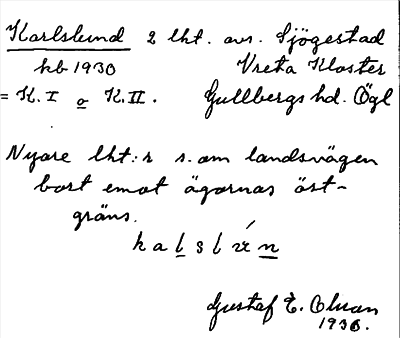 Karlslund 2 lht. avs. Sjögestad
hb 1930 Vreta Kloster
= K. I o K. II. Gullbergs hd. Ögl
Nyare lht:r s. om landsvägen
bort emot ägornas öst-
gräns.
kalslún
Gustaf E. Olsson
1930.